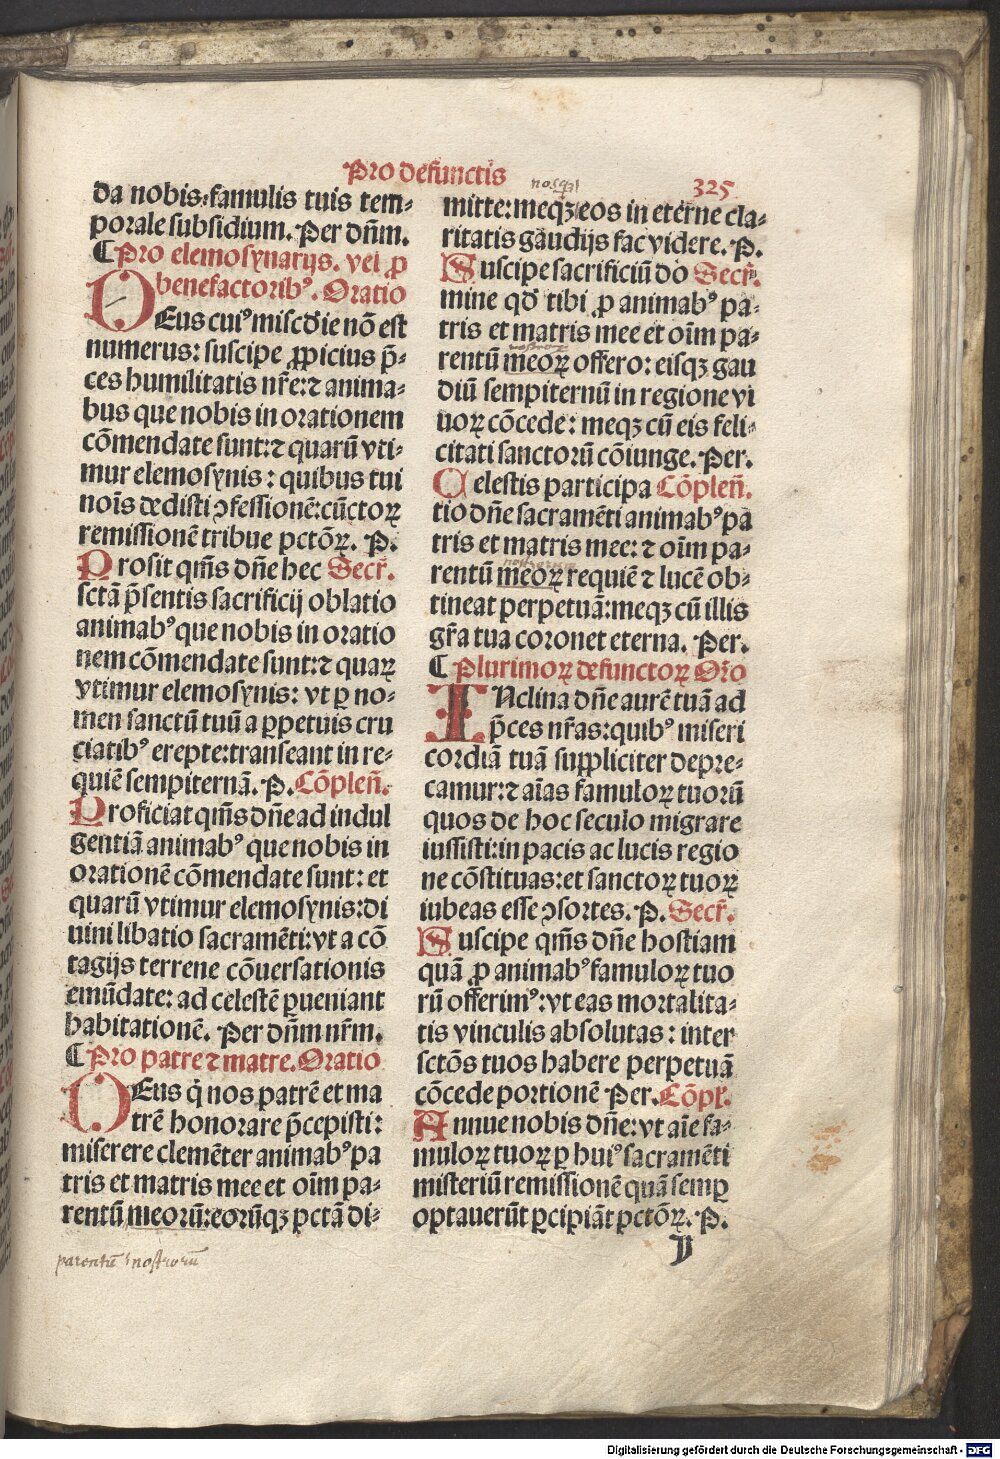 Pro defunctis
325
da nobis: famulis tuis tem⸗
porale subsidium. Per dn̄m.
¶ Pro elemosynarijs. vel ꝓ
benefactoribꝰ. Oratio
DEus cuiꝰ misc̄d̄ie nō est
numerus: suscipe ꝓpicius p̄⸗
ces humilitatis nr̄e: ⁊ anima⸗
bus que nobis in orationem
cōmendate sunt: ⁊ quarū vti⸗
mur elemosynis: quibus tui
noīs dedisti ꝯfessionē: cūctoꝝ
remissionē tribue pctōꝝ. P.
Prosit qm̄s dn̄e hec Secr̄.
sctā p̄sentis sacrificij oblatio
animabꝰ que nobis in oratio
nem cōmendate sunt: ⁊ quaꝝ
vtimur elemosynis: vt ꝑ no⸗
men sanctū tuū a ꝑpetuis cru
ciatibꝰ erepte: transeant in re⸗
quiē sempiternā. P. Cōplen̄.
Proficiat qm̄s dn̄e ad indul
gentiā animabꝰ que nobis in
orationē cōmendate sunt: et
quarū vtimur elemosynis: di
uini libatio sacramēti: vt a cō
tagijs terrene cōuersationis
emūdate: ad celestē ꝑueniant
habitationē. Per dn̄m nr̄m.
¶ Pro patre ⁊ matre. Oratio
DEus q̇ nos patrē et ma
trē honorare p̄cepisti:
miserere clemēter animabꝰ pa
tris et matris mee et oīm pa⸗
rentū meorū: eorūqꝫ pctā di⸗
parentū nostrorū
nosqꝫ
mitte: meqꝫ eos in eterne cla⸗
ritatis gaudijs fac videre. P.
Suscipe sacrificiū do Secr̄.
mine qd̄ tibi ꝓ animabꝰ pa⸗
tris et matris mee et oīm pa⸗
nostroꝝ
rentū meoꝝ offero: eisqꝫ gau
diū sempiternū in regione vi
uoꝝ cōcede: meqꝫ cū eis feli⸗
citati sanctorū cōiunge. Per.
Celestis participa Cōplen̄.
tio dn̄e sacramēti animabꝰ pa
tris et matris mee: ⁊ oīm pa⸗
nostrorum
rentū meoꝝ requiē ⁊ lucē ob⸗
tineat perpetuā: meqꝫ cū illis
gr̄a tua coronet eterna. Per.
¶ Plurimoꝝ defunctoꝝ Oro
INclina dn̄e aurē tuā ad
p̄ces nr̄as: quibꝰ miseri
cordiā tuā supꝑliciter depre⸗
camur: ⁊ aīas famuloꝝ tuorū
quos de hoc seculo migrare
iussisti: in pacis ac lucis regio
ne cōstituas: et sanctoꝝ tuoꝝ
iubeas esse ꝯsortes. P. Secr̄.
Suscipe qm̄s dn̄e hostiam
quā ꝓ animabꝰ famuloꝝ tuo
rū offerimꝰ: vt eas mortalita⸗
tis vinculis absolutas: inter
sctōs tuos habere perpetuā
cōcede portionē Per. Cōpl̄.
Annue nobis dn̄e: vt aīe fa⸗
muloꝝ tuoꝝ ꝑ huiꝰ sacramēti
misteriū remissionē quā semꝑ
optauerūt ꝑcipiāt pctōꝝ. P.
Digitalisierung gefördert durch die Deutsche Forschungsgemeinschaft - DFG